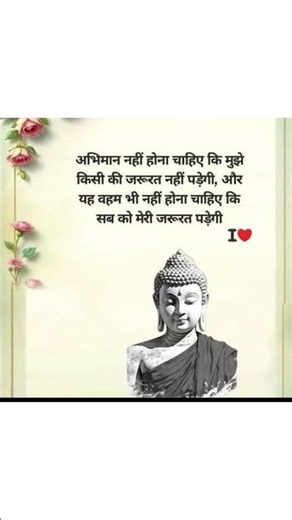 अभिमान नहीं होना चाहिए कि मुझे
किसी की जरूरत नहीं पड़ेगी, और
यह वहम भी नहीं होना चाहिए कि
सब को मेरी जरूरत पड़ेगी
I❤️